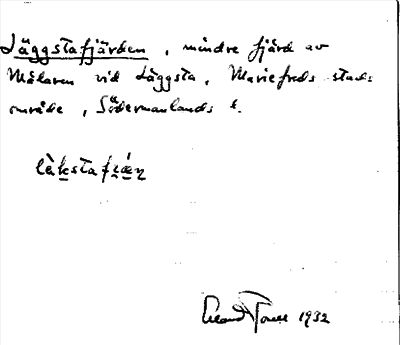 Läggstafjärden, mindre fjärd av
Mälaren vid Läggsta, Mariefreds stads
område, Södermanlands l.
lèkstafjǽ̣n
1932